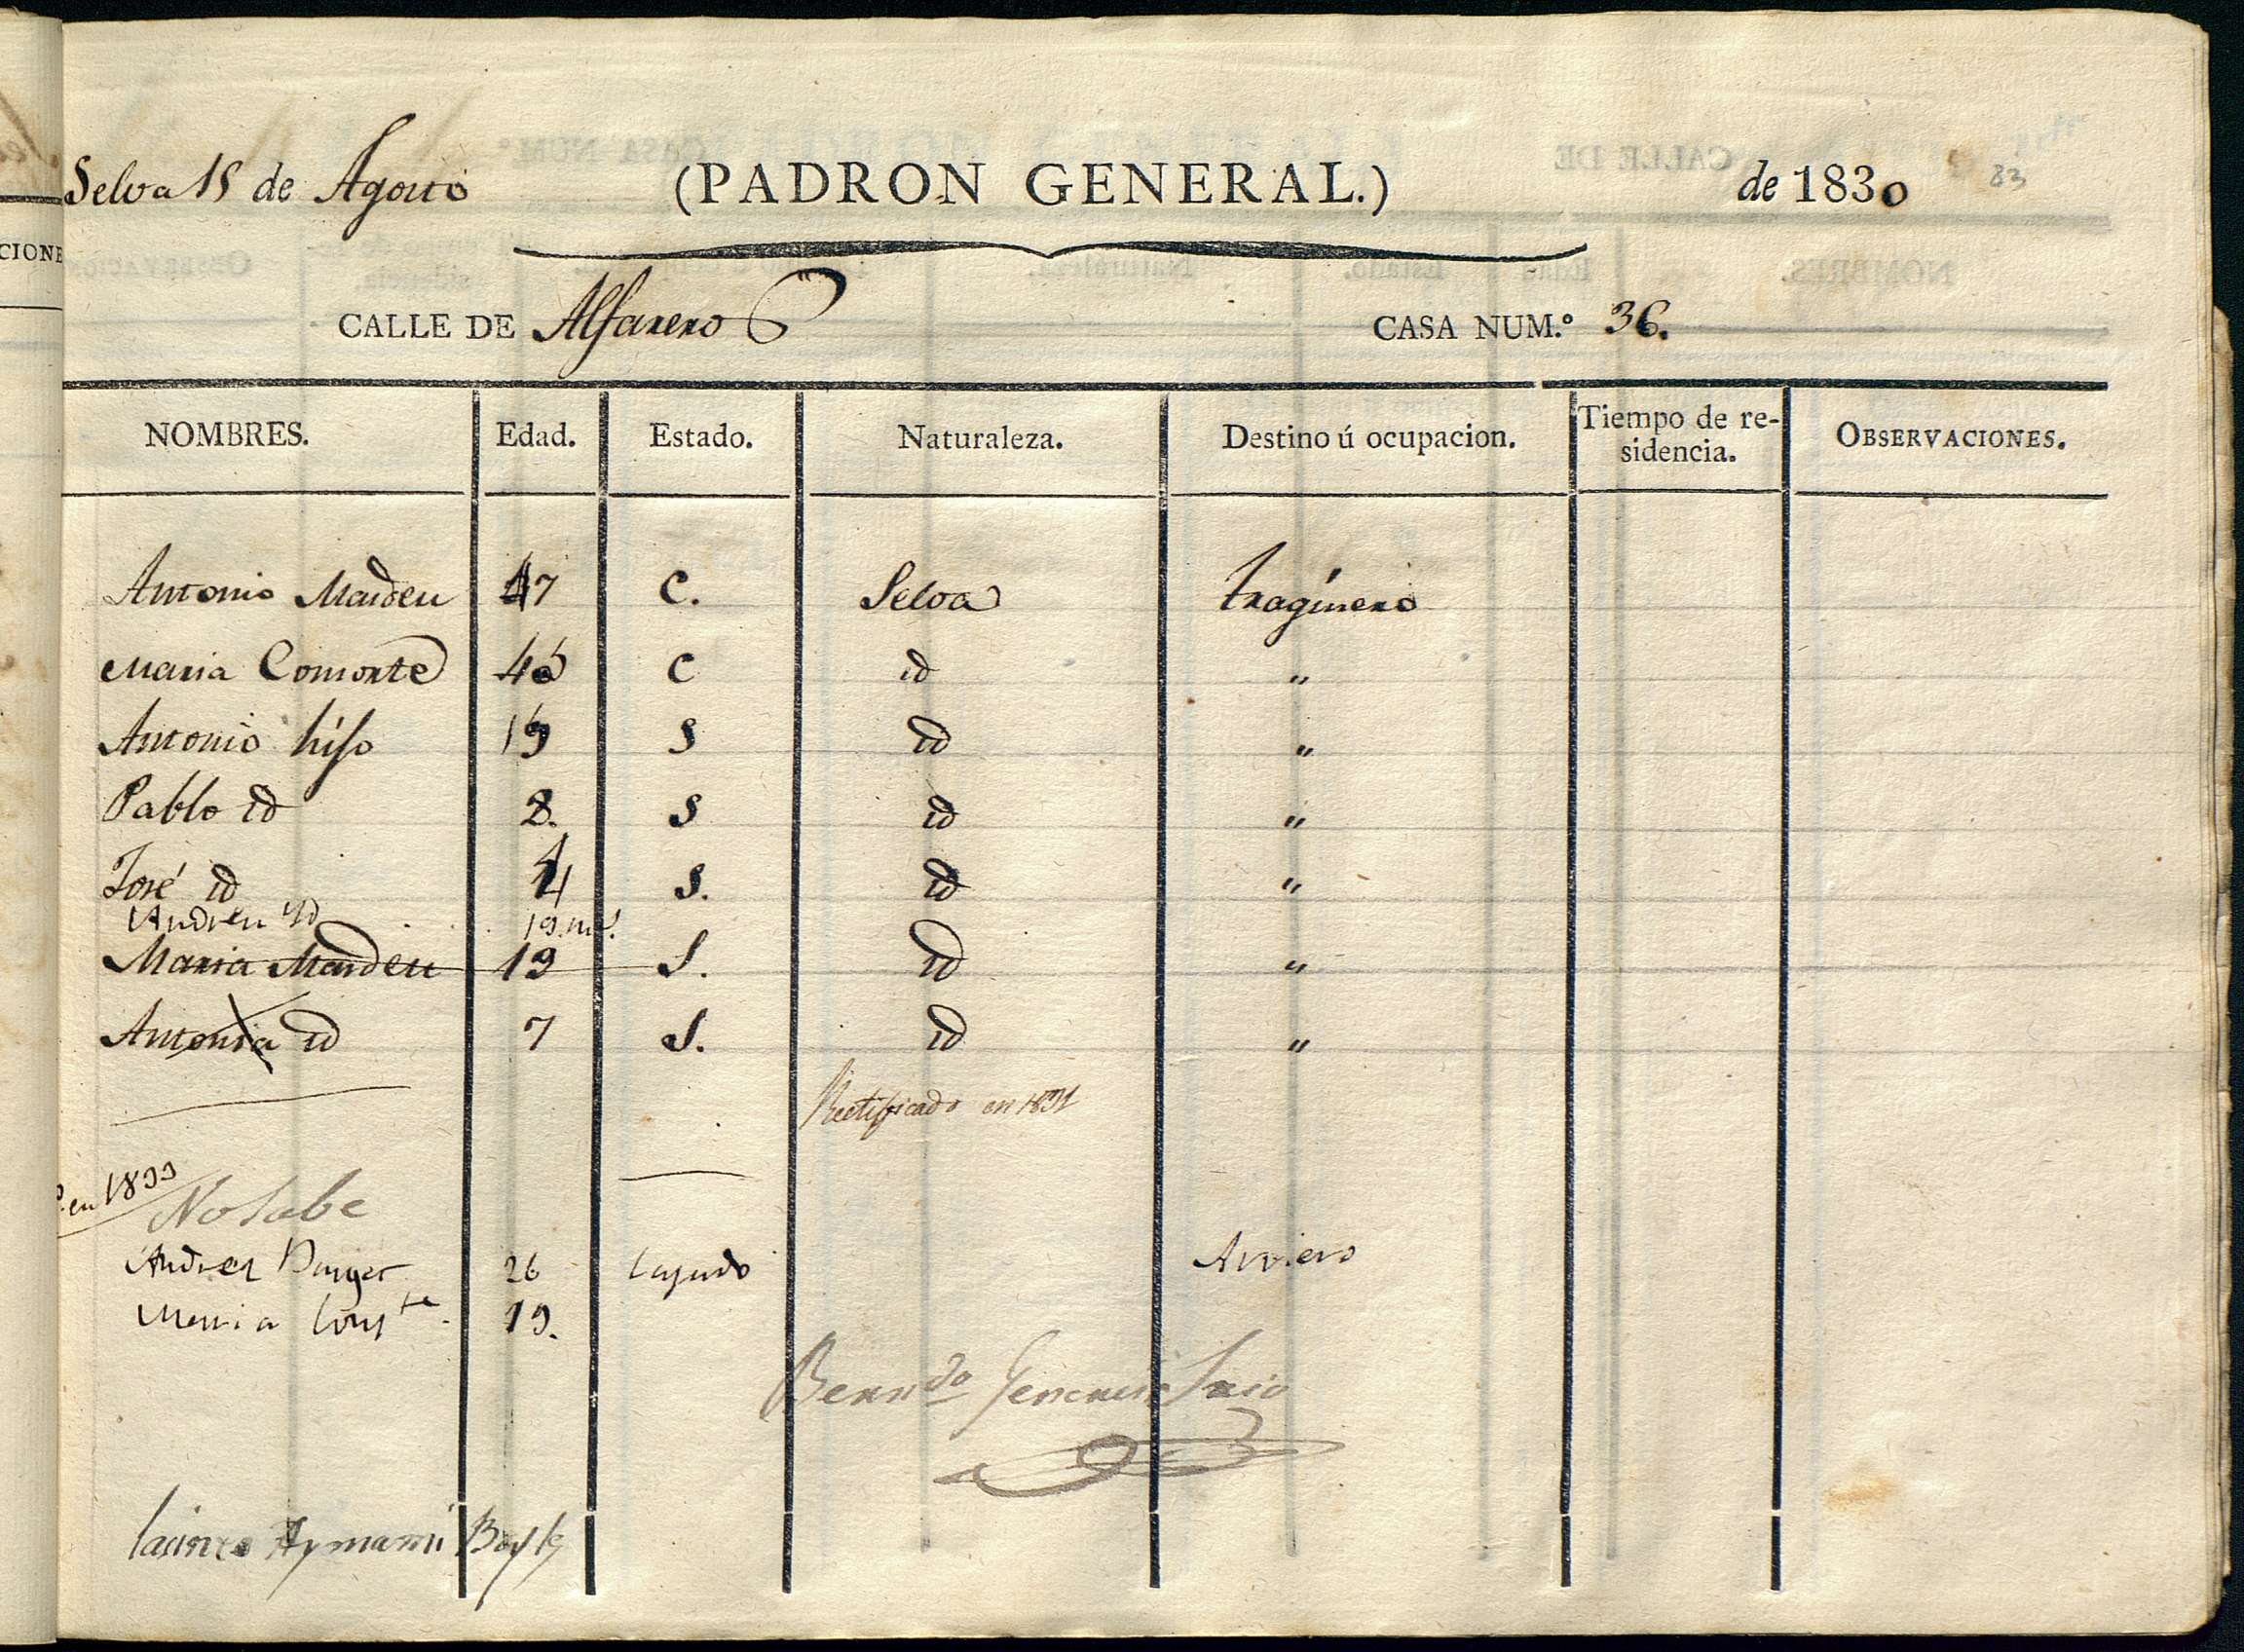 Selva 15 de Agosto (PADRON GENERAL.) de 1830 83
CALLE DE Alfarero CASA NUM.º 36.
NOMBRES. Edad. Estado. Naturaleza. Destino ú ocupacion. Tiempo de re-sidencia. OBSERVACIONES.
Antonio Masdeu 47 C. Selva traginero
Maria Consorte C id "
Antonio hijo 19 S id "
Pablo id 8. S id "
José id 4 S. id "
Andreu Yd 19. ms.
Maria Masdeu 19 S. id "
Antonia id 7 S. id "
Rectificado en 1831
en 1833
No sabe
Andreu 26 Casado Arriero
Maria Conste. 19.
Berndo Srio
Aymami Bayle
CIONE